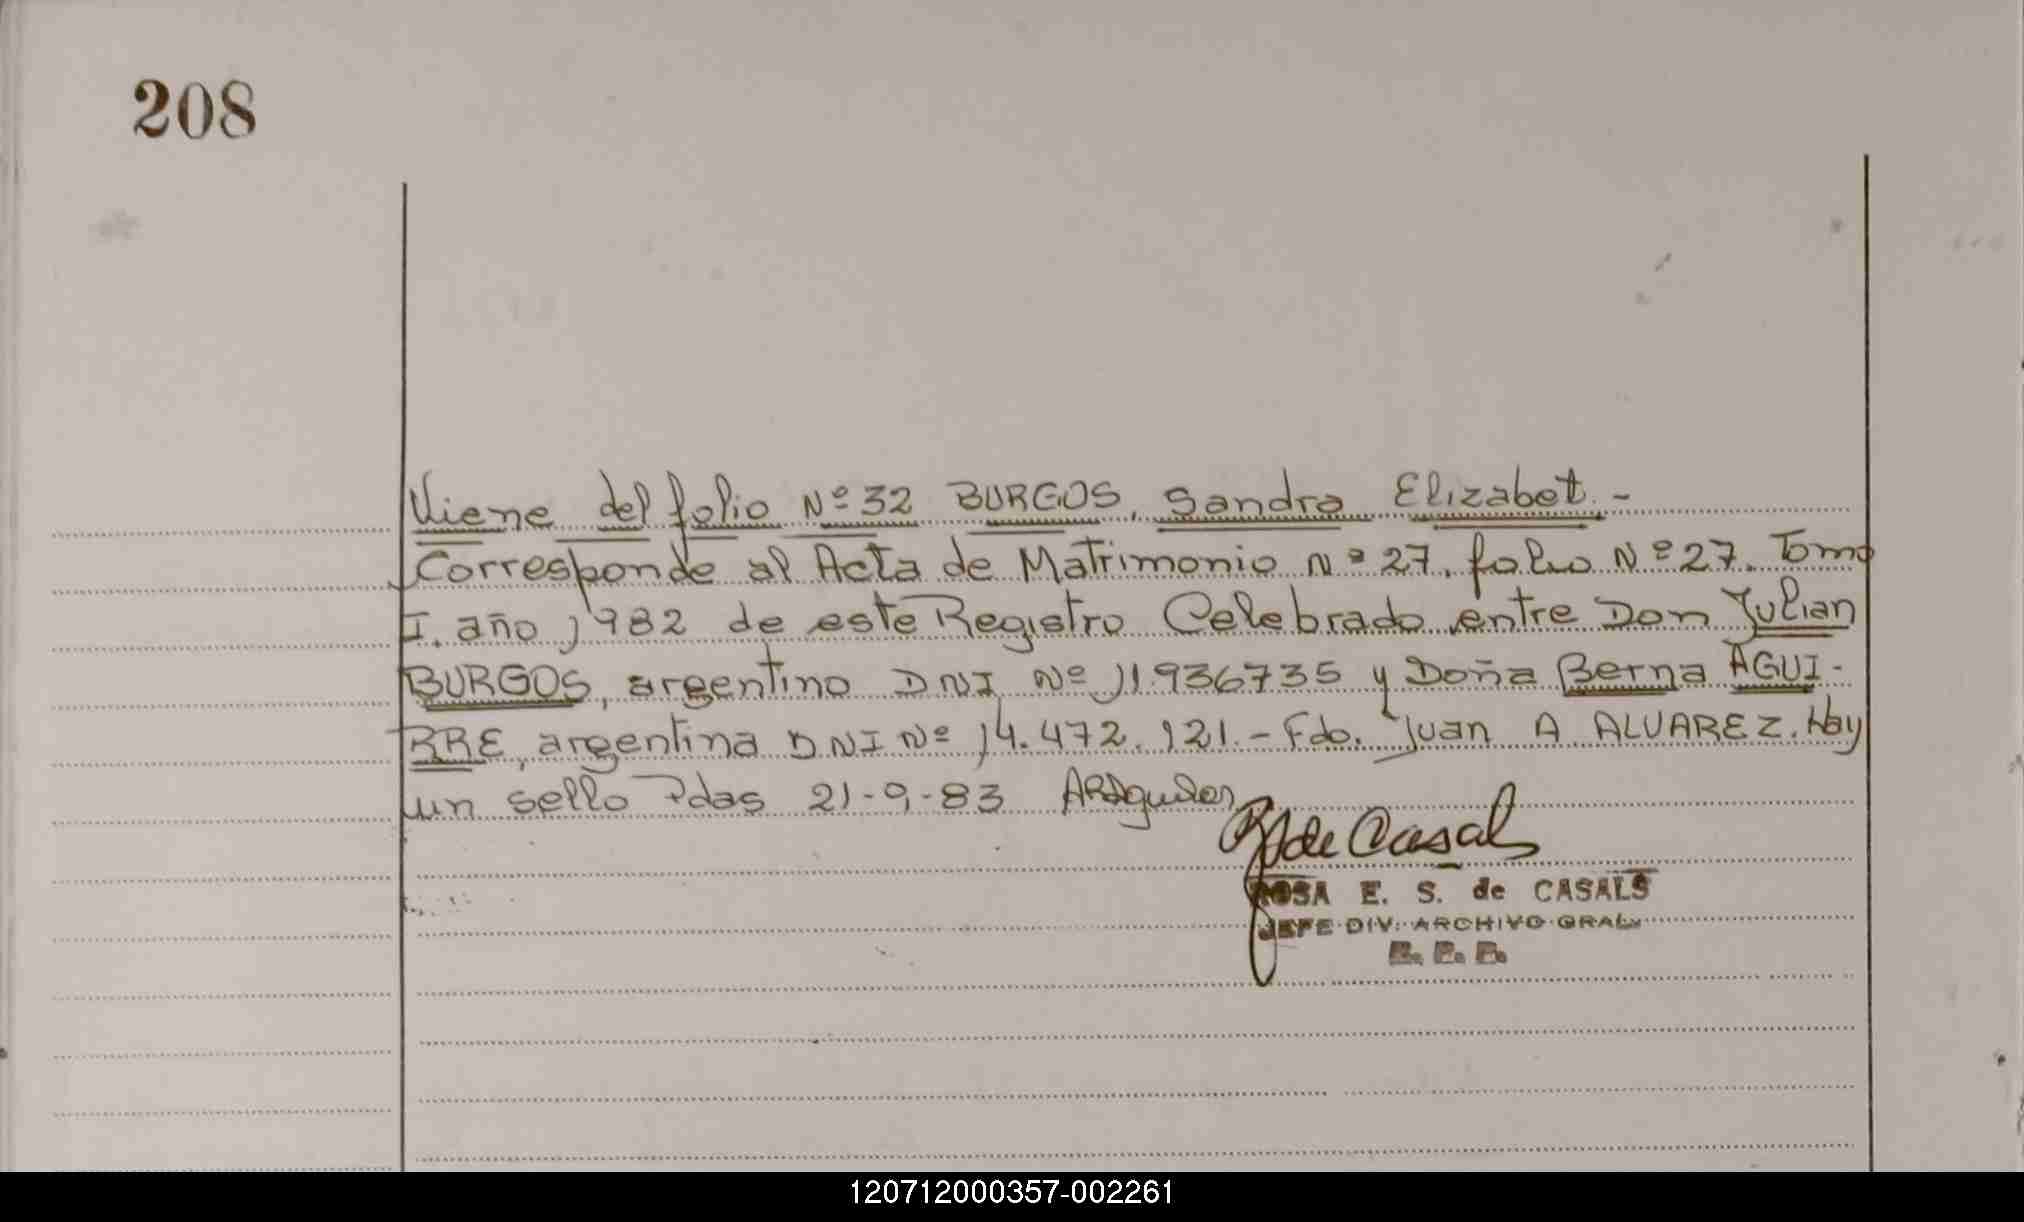 208
Viene del folio Nº 32 BURGOS, Sandra Elizabet.-
Corresponde al Acta de Matrimonio Nº 27. folio Nº 27. Tomo
I. año 1982 de este Registro Celebrado entre Don Julian
BURGOS, argentino DNI Nº 11936735 y Doña Berna AGUI-
RRE, argentina DNI Nº 14.472.121.- Fdo. Juan A ALVAREZ. Hay
un sello Pdas 21-9-83
de Casals
ROSA E. S. de CASALS
JEFE DIV. ARCHIVO GRAL.
120712000357-002261